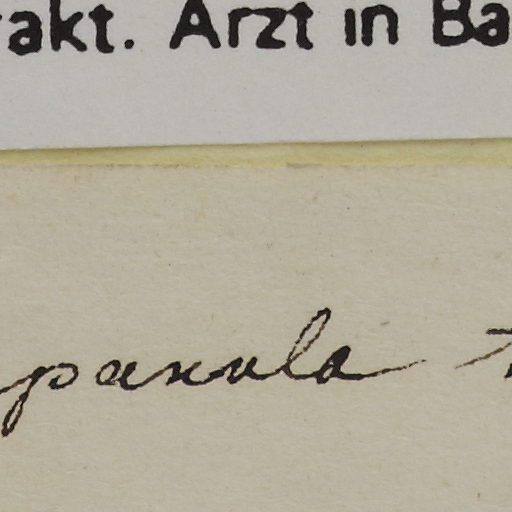 rakt. Arzt in Ba
panula